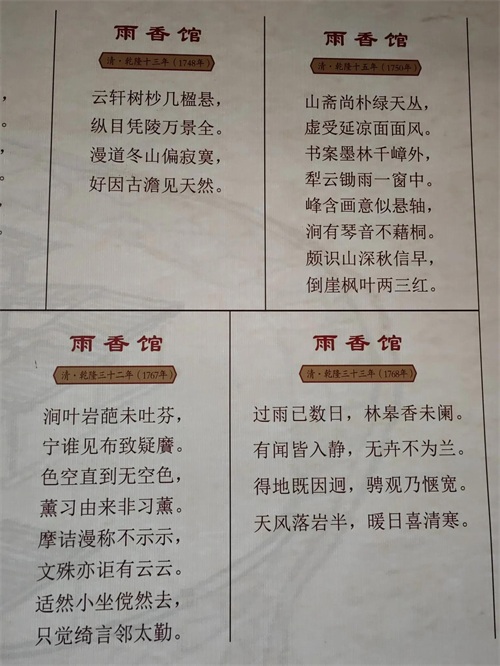 雨香馆
清·乾隆十三年（1748年）
云轩树杪几楹悬，
纵目凭陵万景全。
漫道冬山偏寂寞，
好因古澹见天然。
雨香馆
清·乾隆十五年（1750年）
山斋尚朴绿天丛，
虚受延凉面面风。
书案墨林千嶂外，
犁云锄雨一窗中。
峰含画意似悬轴，
涧有琴音不藉桐。
颇识山深秋信早，
倒崖枫叶两三红。
雨香馆
清·乾隆三十二年（1767年）
涧叶岩葩未吐芬，
宁谁见布致疑麐。
色空直到无空色，
薰习由来非习薰。
摩诘漫称不示示，
文殊亦讵有云云。
适然小坐傥然去，
只觉绮言邻太勤。
雨香馆
清·乾隆三十三年（1768年）
过雨已数日，林皋香未阑。
有闻皆入静，无卉不为兰。
得地既因迥，骋观乃惬宽。
天风落岩半，暖日喜清寒。